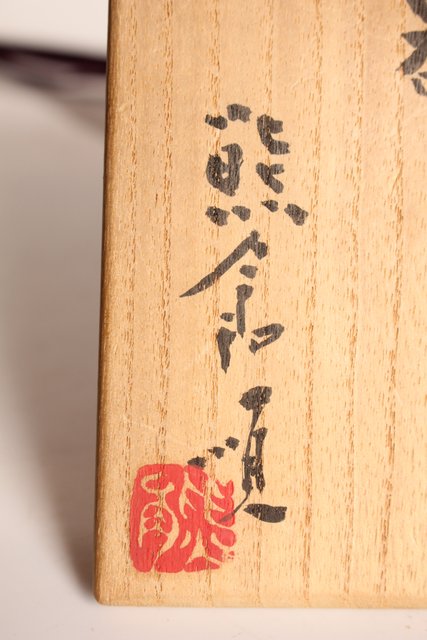 熊倉順